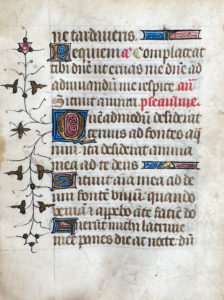 ne tardaveris.
Requiem a Complaceat
tibi dñe ut eruas me dñe ad
adiuuandũ me respice añ
Sitiuit anima pseaulme.
Quẽadmodũ desiderat
ceruus ad fontes aq̃
ita desiderat anima
mea ad te deus
Sitiuit aĩa mea ad de
um fontẽ uiuũ quando
ueniã & apparebo ãte faciẽ d
Fuerũt michi lacrime
mee panes die ac nocte dũ